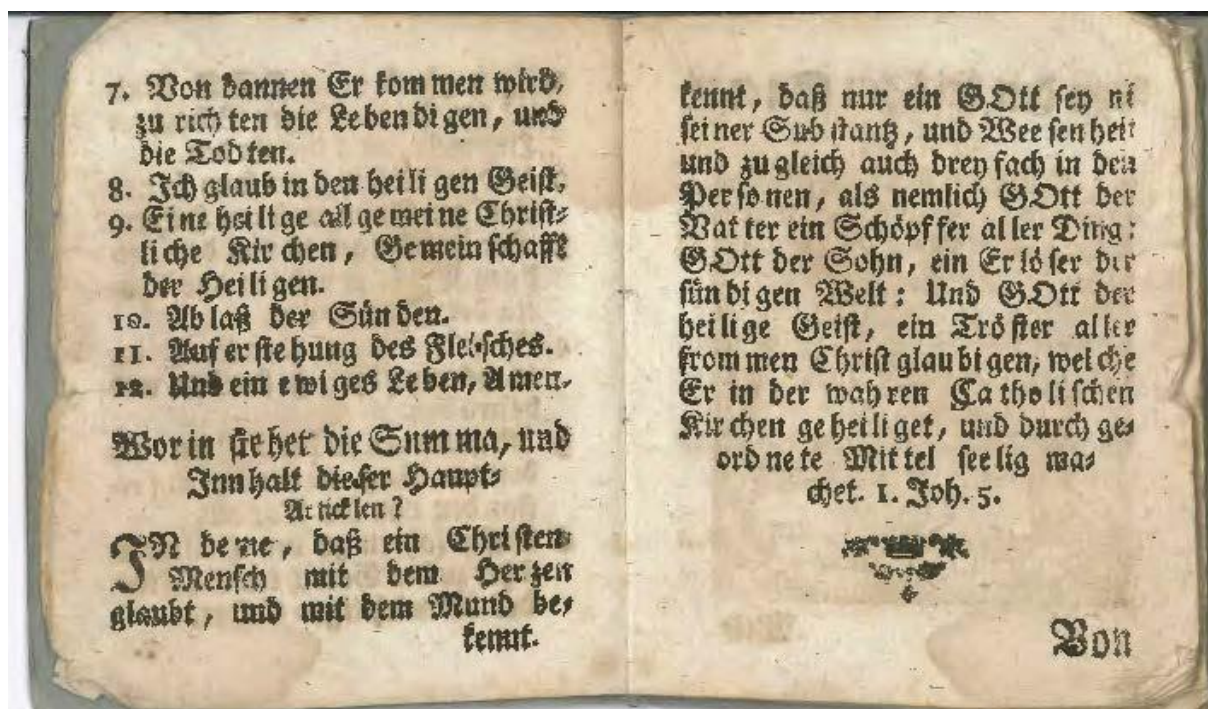 7. Von dannen Er kom men wird,
zu rich ten die Leben di gen, und
die Tod ten.
8. Ich glaub in den heili gen Geist.
9. Ei ne heilige all ge meine Christ⸗
li che Kir chen, Gemein schafft
der Heili gen.
10. Ab laß der Sün den.
11. Auf er ste hung des Fleisches.
12. Und ein e wi ges Le ben, Amen.
Wor in ste het die Sum ma, und
Inn halt dieser Haupt⸗
Ar tick len?
IN deme, daß ein Chri sten⸗
Mensch mit dem Her zen
glaubt, und mit dem Mund be⸗
kennt.
kennt, daß nur ein GOtt sey ni
sei ner Sub stantz, und Wee sen heit
und zu gleich auch drey fach in den
Per so nen, als nemlich GOtt der
Vat ter ein Schöpf fer al ler Ding:
GOtt der Sohn, ein Er lö ser der
sün di gen Welt: Und GOtt der
hei lige Geist, ein Trö ster aller
from men Christ glau bi gen, wel che
Er in der wah ren Ca tho li schen
Kir chen ge hei li get, und durch ge⸗
ord ne te Mit tel see lig ma⸗
chet. 1. Joh. 5.
Von